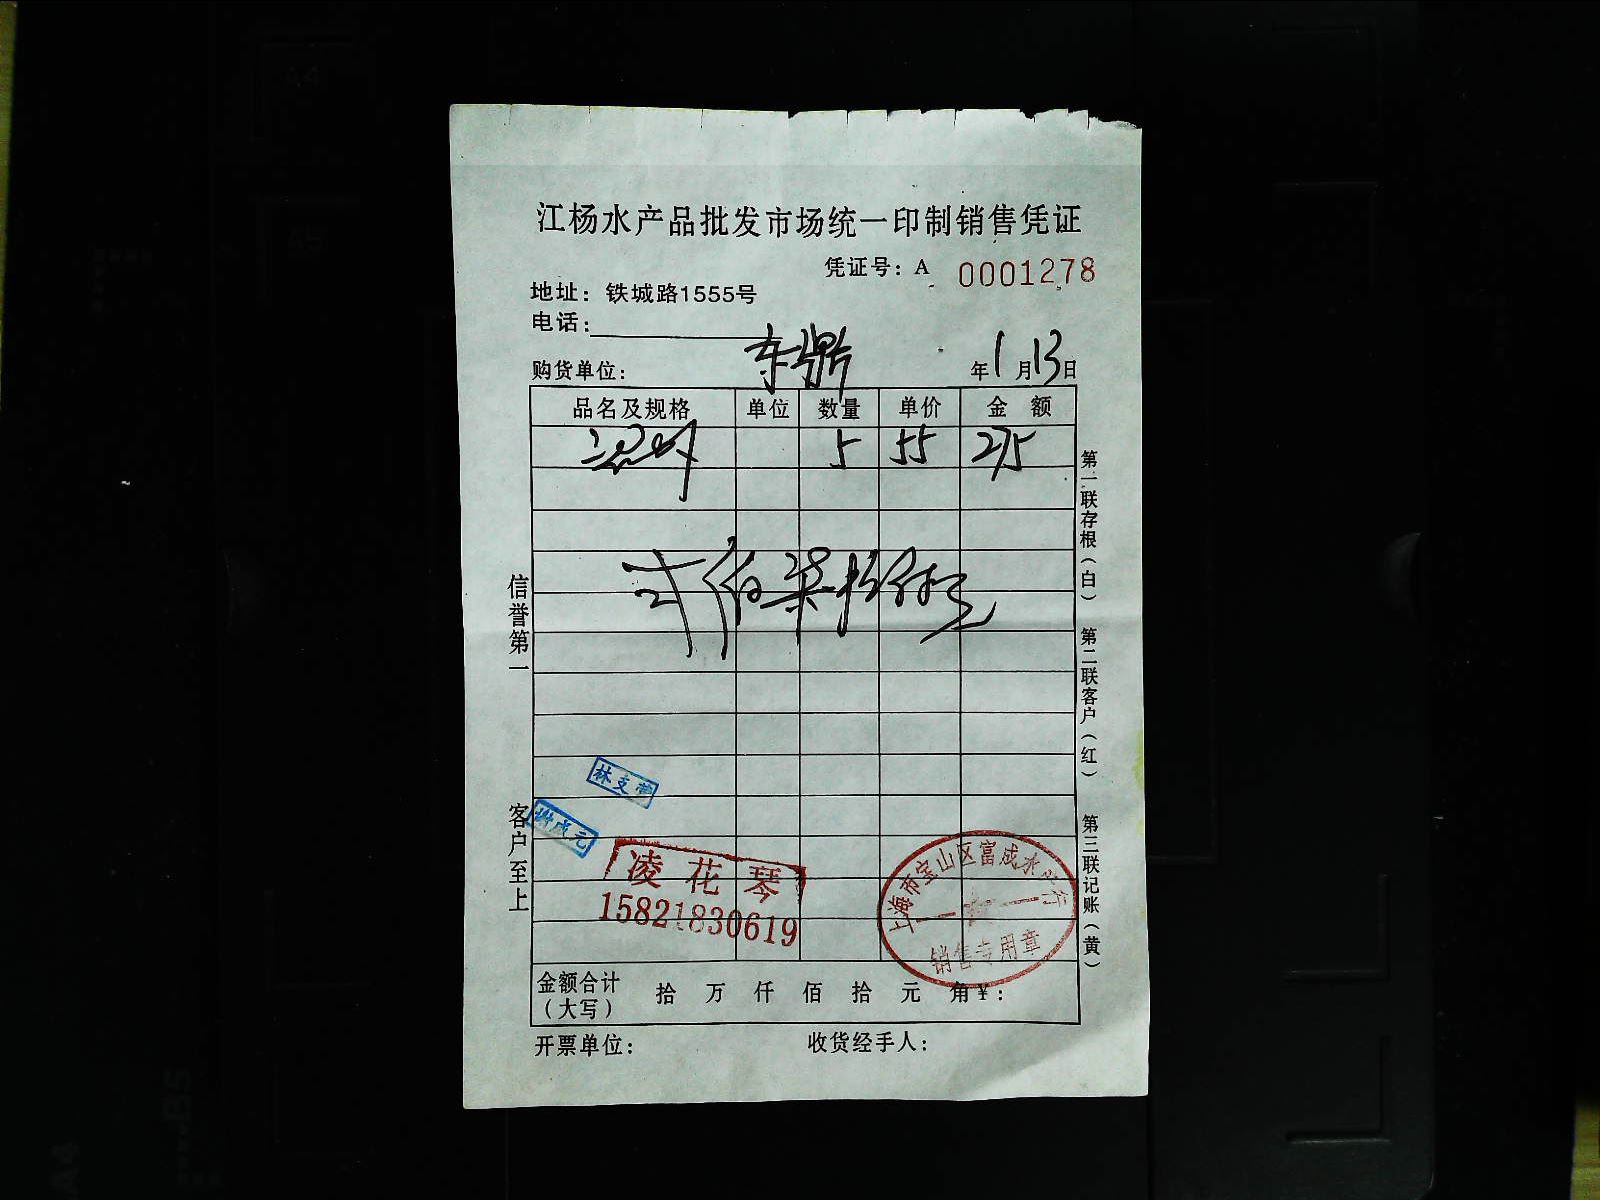 江杨水产品批发市场统一印制销售凭证
凭证号：A 0001278
地址：铁城路1555号
电话：
购货单位：东鼎 年1月13日
品名及规格 单位 数量 单价 金额
5 55 275
贰佰柒拾伍元
信誉第一
客户至上
第一联存根（白）
第二联客户（红）
第三联记账（黄）
林支
谢成元
凌花琴
15821830619
上海市宝山区富成水产行
销售专用章
金额合计（大写） 拾 万 仟 佰 拾 元 角 ￥：
开票单位： 收货经手人：